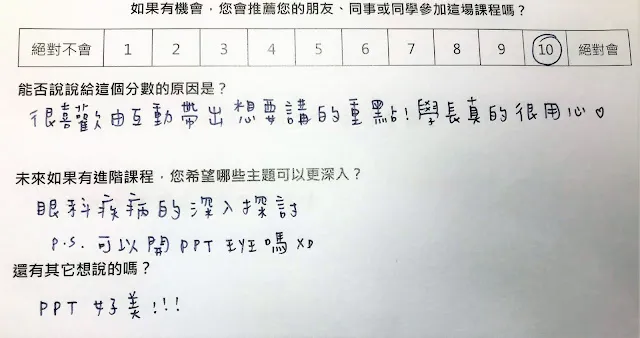 如果有機會，您會推薦您的朋友、同事或同學參加這場課程嗎？
絕對不會 1 2 3 4 5 6 7 8 9 10 絕對會
能否說說給這個分數的原因是？
很喜歡由互動帶出想要講的重點！學長真的很用心♡
未來如果有進階課程，您希望哪些主題可以更深入？
眼科疾病的深入探討
P.S. 可以開PPT 班嗎 XD
還有其它想說的嗎？
PPT 好美!!!